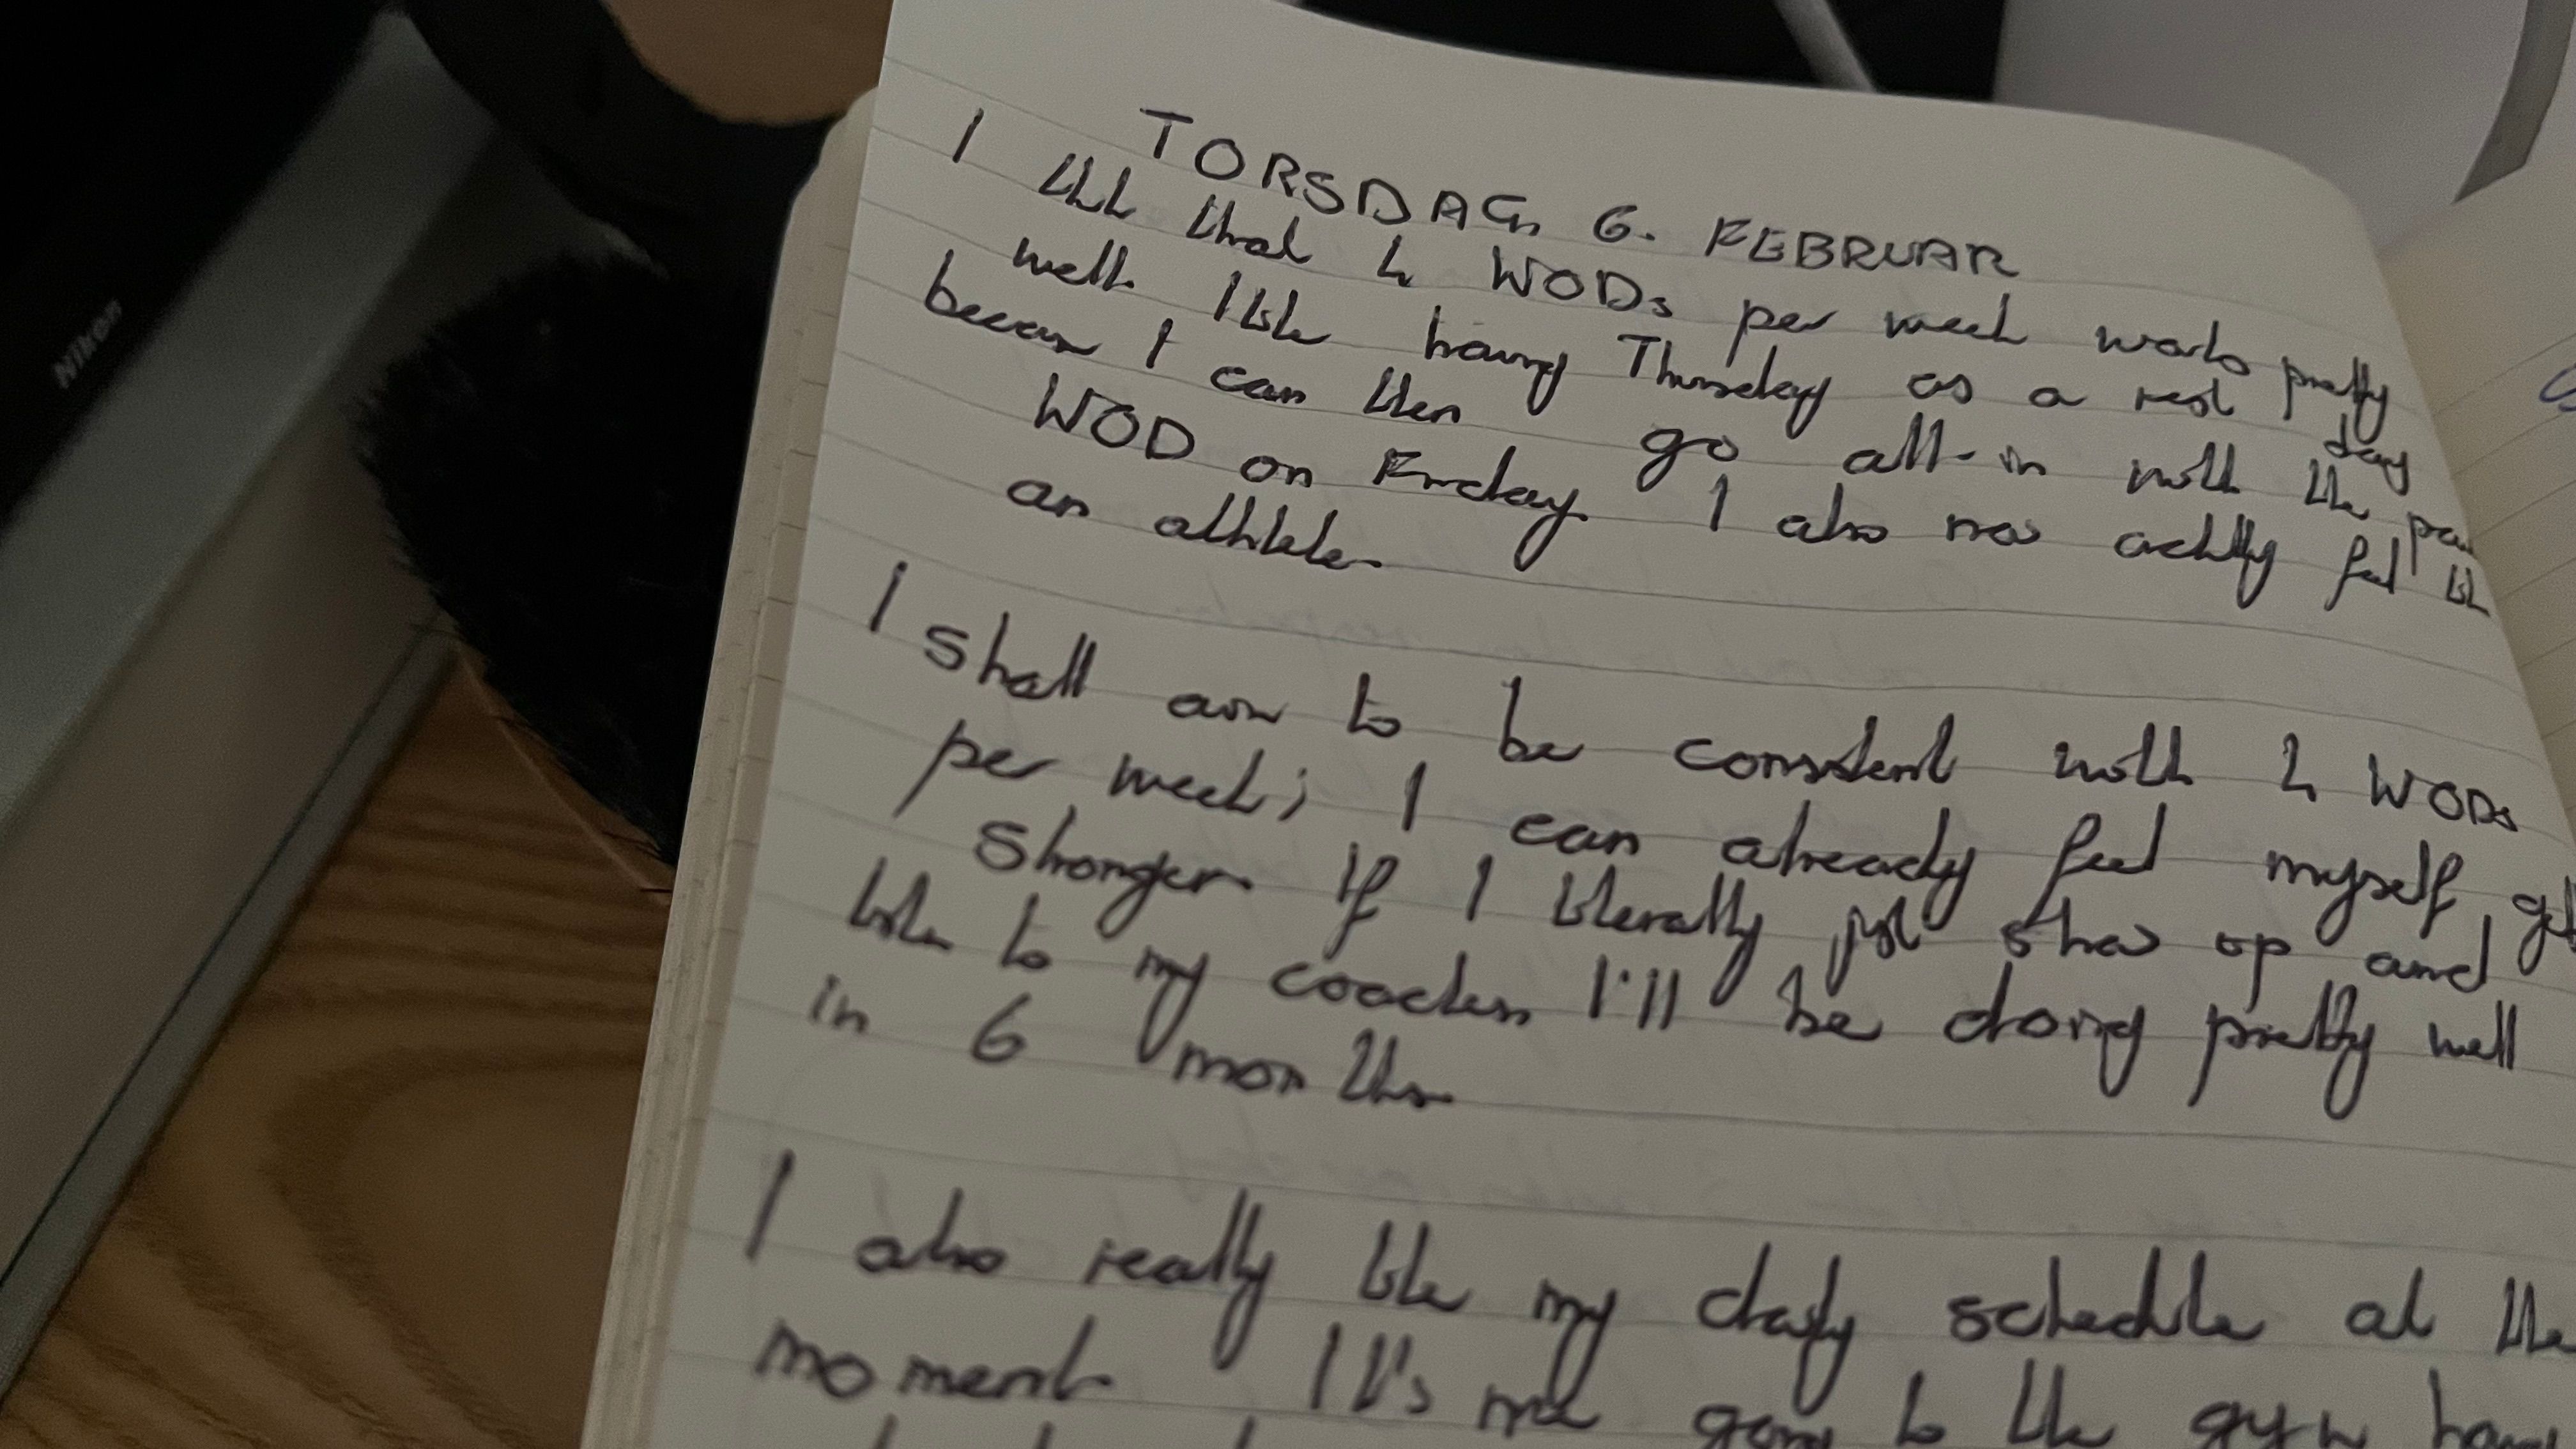 Nikon
TORSDAG 6. FEBRUAR
I think that 4 WODs per week works pretty
well. I like having Thursday as a rest day
because I can then go all-in with the
WOD on Friday. I also now actually feel like
an athlete.
I shall aim to be consistent with 4 WODs
per week; I can already feel myself
stronger. If I literally just show up and
listen to my coaches I'll be doing pretty well
in 6 months.
I also really like my daily schedule at the
moment. It's nice going to the gym